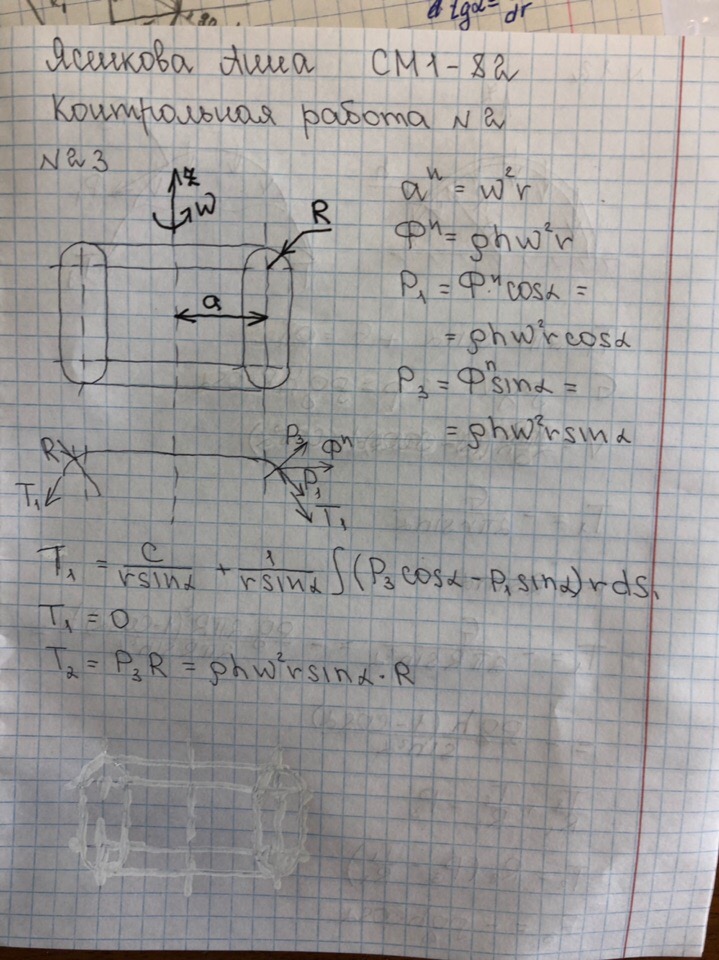 tgα = dr
Ясенкова Анна СМ1-82
Контрольная работа №2
№23
z
ω
R
a
aⁿ = ω²r
Φⁿ = ρhω²r
P₁ = Φⁿcosα =
= ρhω²rcosα
P₃ = Φⁿsinα =
= ρhω²rsinα
R
T₁
P₃
Φⁿ
P₁
T₁
T₁ = C/(rsinα) + 1/(rsinα) ∫(P₃cosα - P₁sinα)rds₁
T₁ = 0
T₂ = P₃R = ρhω²rsinα·R